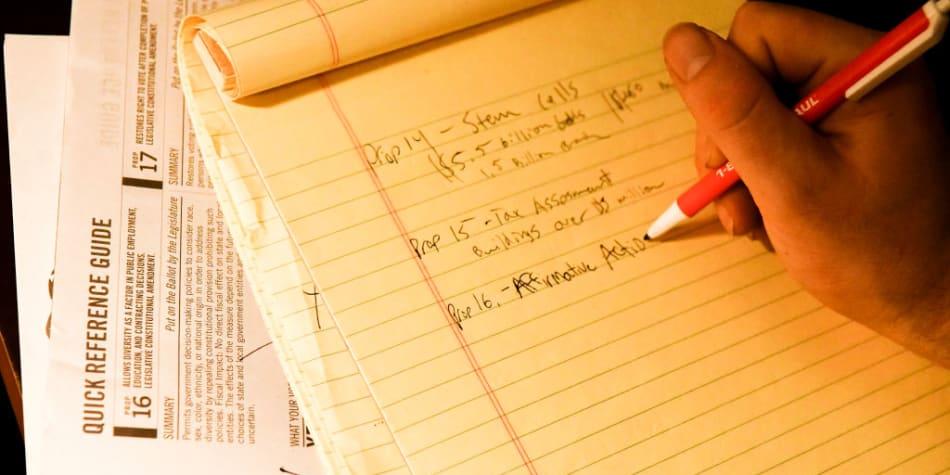 QUICK REFERENCE GUIDE
PROP 16
ALLOWS DIVERSITY AS A FACTOR IN PUBLIC EMPLOYMENT,
EDUCATION, AND CONTRACTING DECISIONS.
LEGISLATIVE CONSTITUTIONAL AMENDMENT.
SUMMARY
Put on the Ballot by the Legislature
Permits government decision-making policies to consider race,
sex, color, ethnicity, or national origin in order to address
diversity by repealing constitutional provision prohibiting such
policies. Fiscal Impact: No direct fiscal effect on state and
entities. The effects of the measure depend on the
choices of state and local government entities
uncertain.
WHAT YOUR
PROP 17
RESTORES RIGHT TO VOTE AFTER COMPLETION OF
LEGISLATIVE CONSTITUTIONAL AMENDMENT.
SUMMARY
Put on the
Restores voting
Prop 14 - Stem Cells
$5.5 billion
1.5 Billion
Prop 15 - Tax Assessment
Buildings over million
Prop 16. - Affirmative Actio